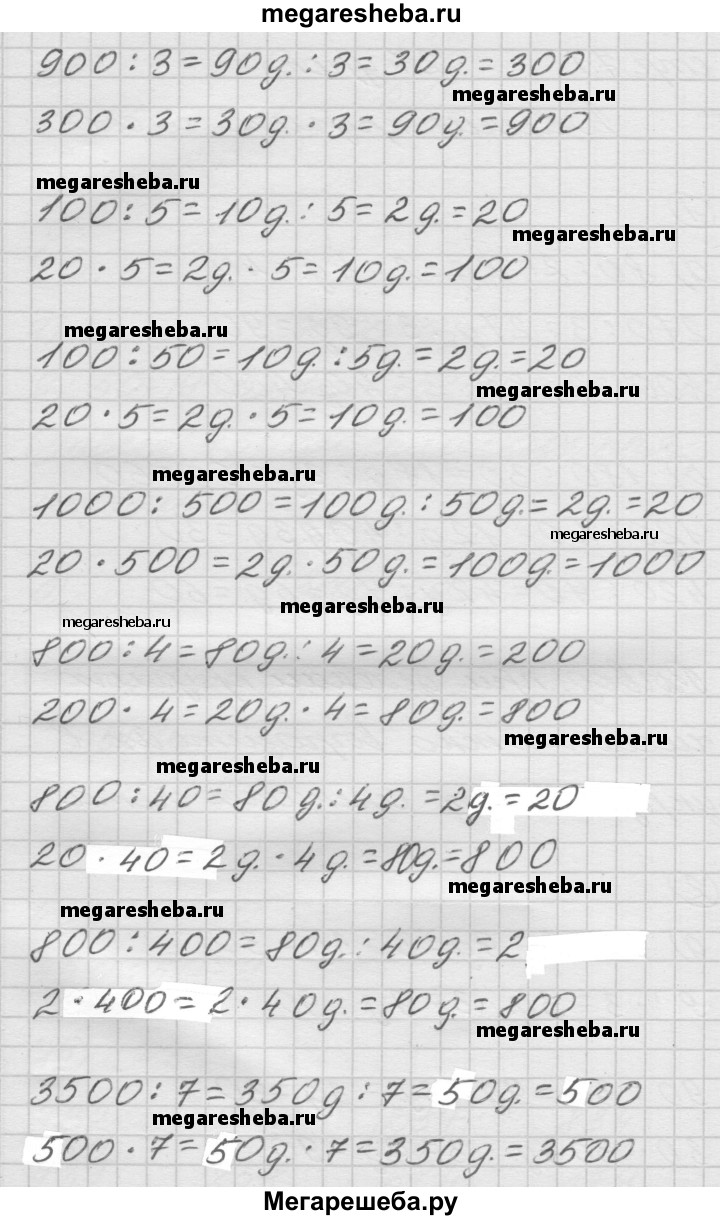 megaresheba.ru
900 : 3 = 90д. : 3 = 30д. = 300
megaresheba.ru
300 · 3 = 30д. · 3 = 90д. = 900
megaresheba.ru
100 : 5 = 10д. : 5 = 2д. = 20
megaresheba.ru
20 · 5 = 2д. · 5 = 10д. = 100
megaresheba.ru
100 : 50 = 10д. : 5д. = 2д. = 20
megaresheba.ru
20 · 5 = 2д. · 5 = 10д. = 100
megaresheba.ru
1000 : 500 = 100д. : 50д. = 2д. = 20
megaresheba.ru
20 · 500 = 2д. · 50д. = 100д. = 1000
megaresheba.ru
megaresheba.ru
800 : 4 = 80д. : 4 = 20д. = 200
200 · 4 = 20д. · 4 = 80д. = 800
megaresheba.ru
megaresheba.ru
800 : 40 = 80д. : 4д. = 2д. = 20
20 · 40 = 2д. · 4д. = 80д. = 800
megaresheba.ru
megaresheba.ru
800 : 400 = 80д. : 40д. = 2
2 · 400 = 2 · 40д. = 80д. = 800
megaresheba.ru
3500 : 7 = 350д : 7 = 50д. = 500
megaresheba.ru
500 · 7 = 50д. · 7 = 350д. = 3500
Мегарешеба.ру